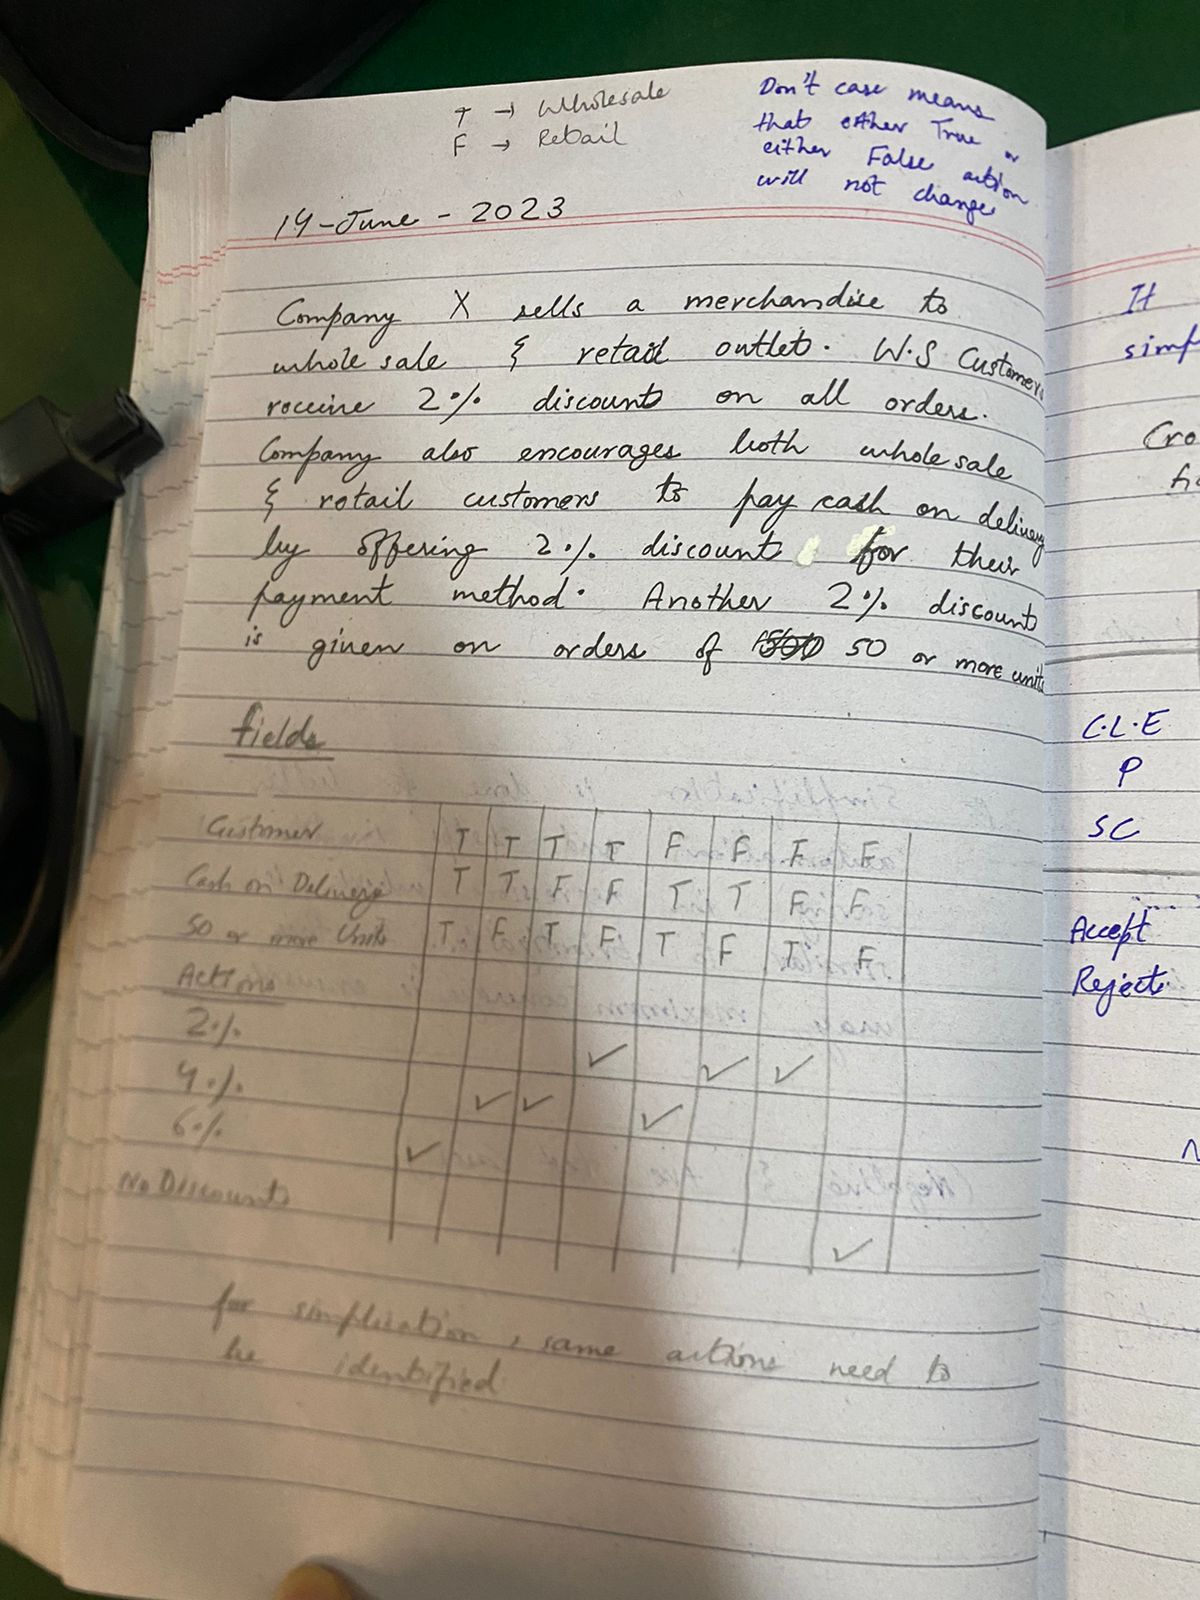 T → Wholesale
F → Retail
Don't case means
that either True or
either False action
will not change
14-June-2023
Company X sells a merchandise to
whole sale & retail outlet. W.S Customers
receive 2% discount on all orders.
Company also encourages both whole sale
& retail customers to pay cash on delivery
by offering 2% discount for their
payment method. Another 2% discount
is given on orders of 50 or more units
fields
Customer T T T T F F F F
Cash on Delivery T T F F T T F F
50 or more Units T F T F T F T F
Actions
2% ✓ ✓ ✓
4% ✓ ✓ ✓
6% ✓
No Discounts ✓
for simplication, same actions need to
be identified
It
simp
Cro
C.L.E
P
SC
Accept
Reject